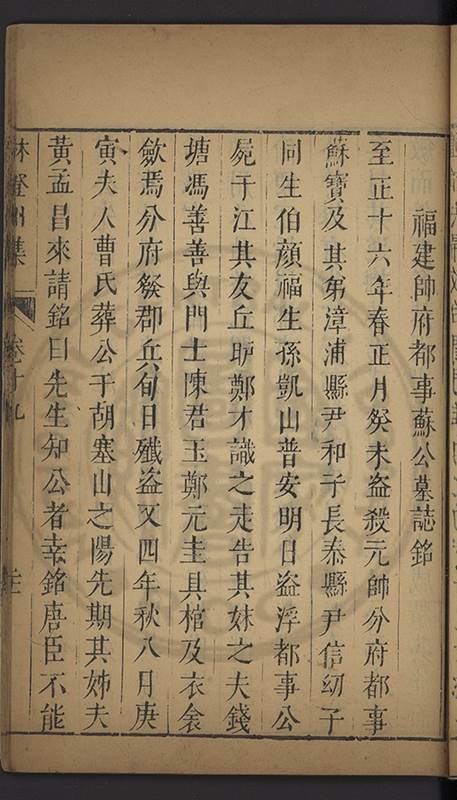 福建帥府都事蘇公墓誌銘
至正十六年春正月癸未盜殺元帥分府都事
蘇寶及其弟漳浦縣尹和子長泰縣尹信幼子
同生伯顏福生孫凱山普安明日盜浮都事公
屍于江其友丘昈鄭才識之走告其妹之夫錢
塘馮善善與門士陳君玉鄭元圭具棺及衣衾
歛焉分府發郡兵旬日殲盜又四年秋八月庚
寅夫人曹氏葬公于胡塞山之陽先期其姊夫
黃孟昌來請銘曰先生知公者幸銘唐臣不能
林登州集 卷十九